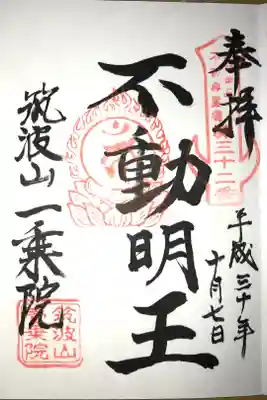 奉拝
三十二番
平成三十年
十月七日
不動明王
筑波山一乗院
筑波山
一乗院